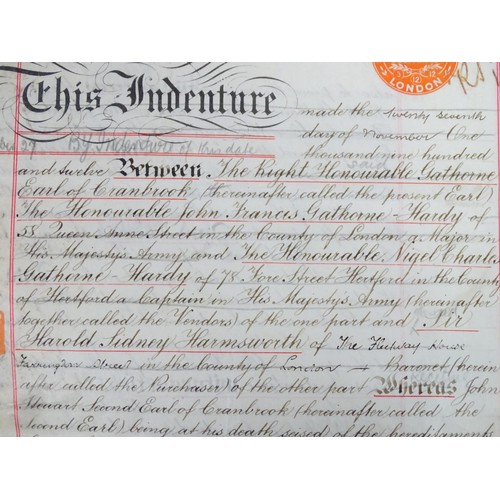 LONDON
This Indenture made the twenty seventh
day of November One
By Indenture of this date
thousand nine hundred
and twelve Between The Right Honourable Gathorne
Earl of Cranbrook (hereinafter called the present Earl)
The Honourable John Francis Gathorne-Hardy of
58 Queen Anne Street in the County of London a Major in
His Majesty's Army and The Honourable Nigel Charles
Gathorne-Hardy of 78 Fore Street Hertford in the County
of Hertford a Captain in His Majesty's Army (hereinafter
together called the Vendors) of the one part and Sir
Harold Sidney Harmsworth of The Fleetway House
Farringdon Street in the County of London Baronet (herein
after called the Purchaser) of the other part Whereas John
Stewart Second Earl of Cranbrook (hereinafter called the
second Earl) being at his death seised of the hereditaments